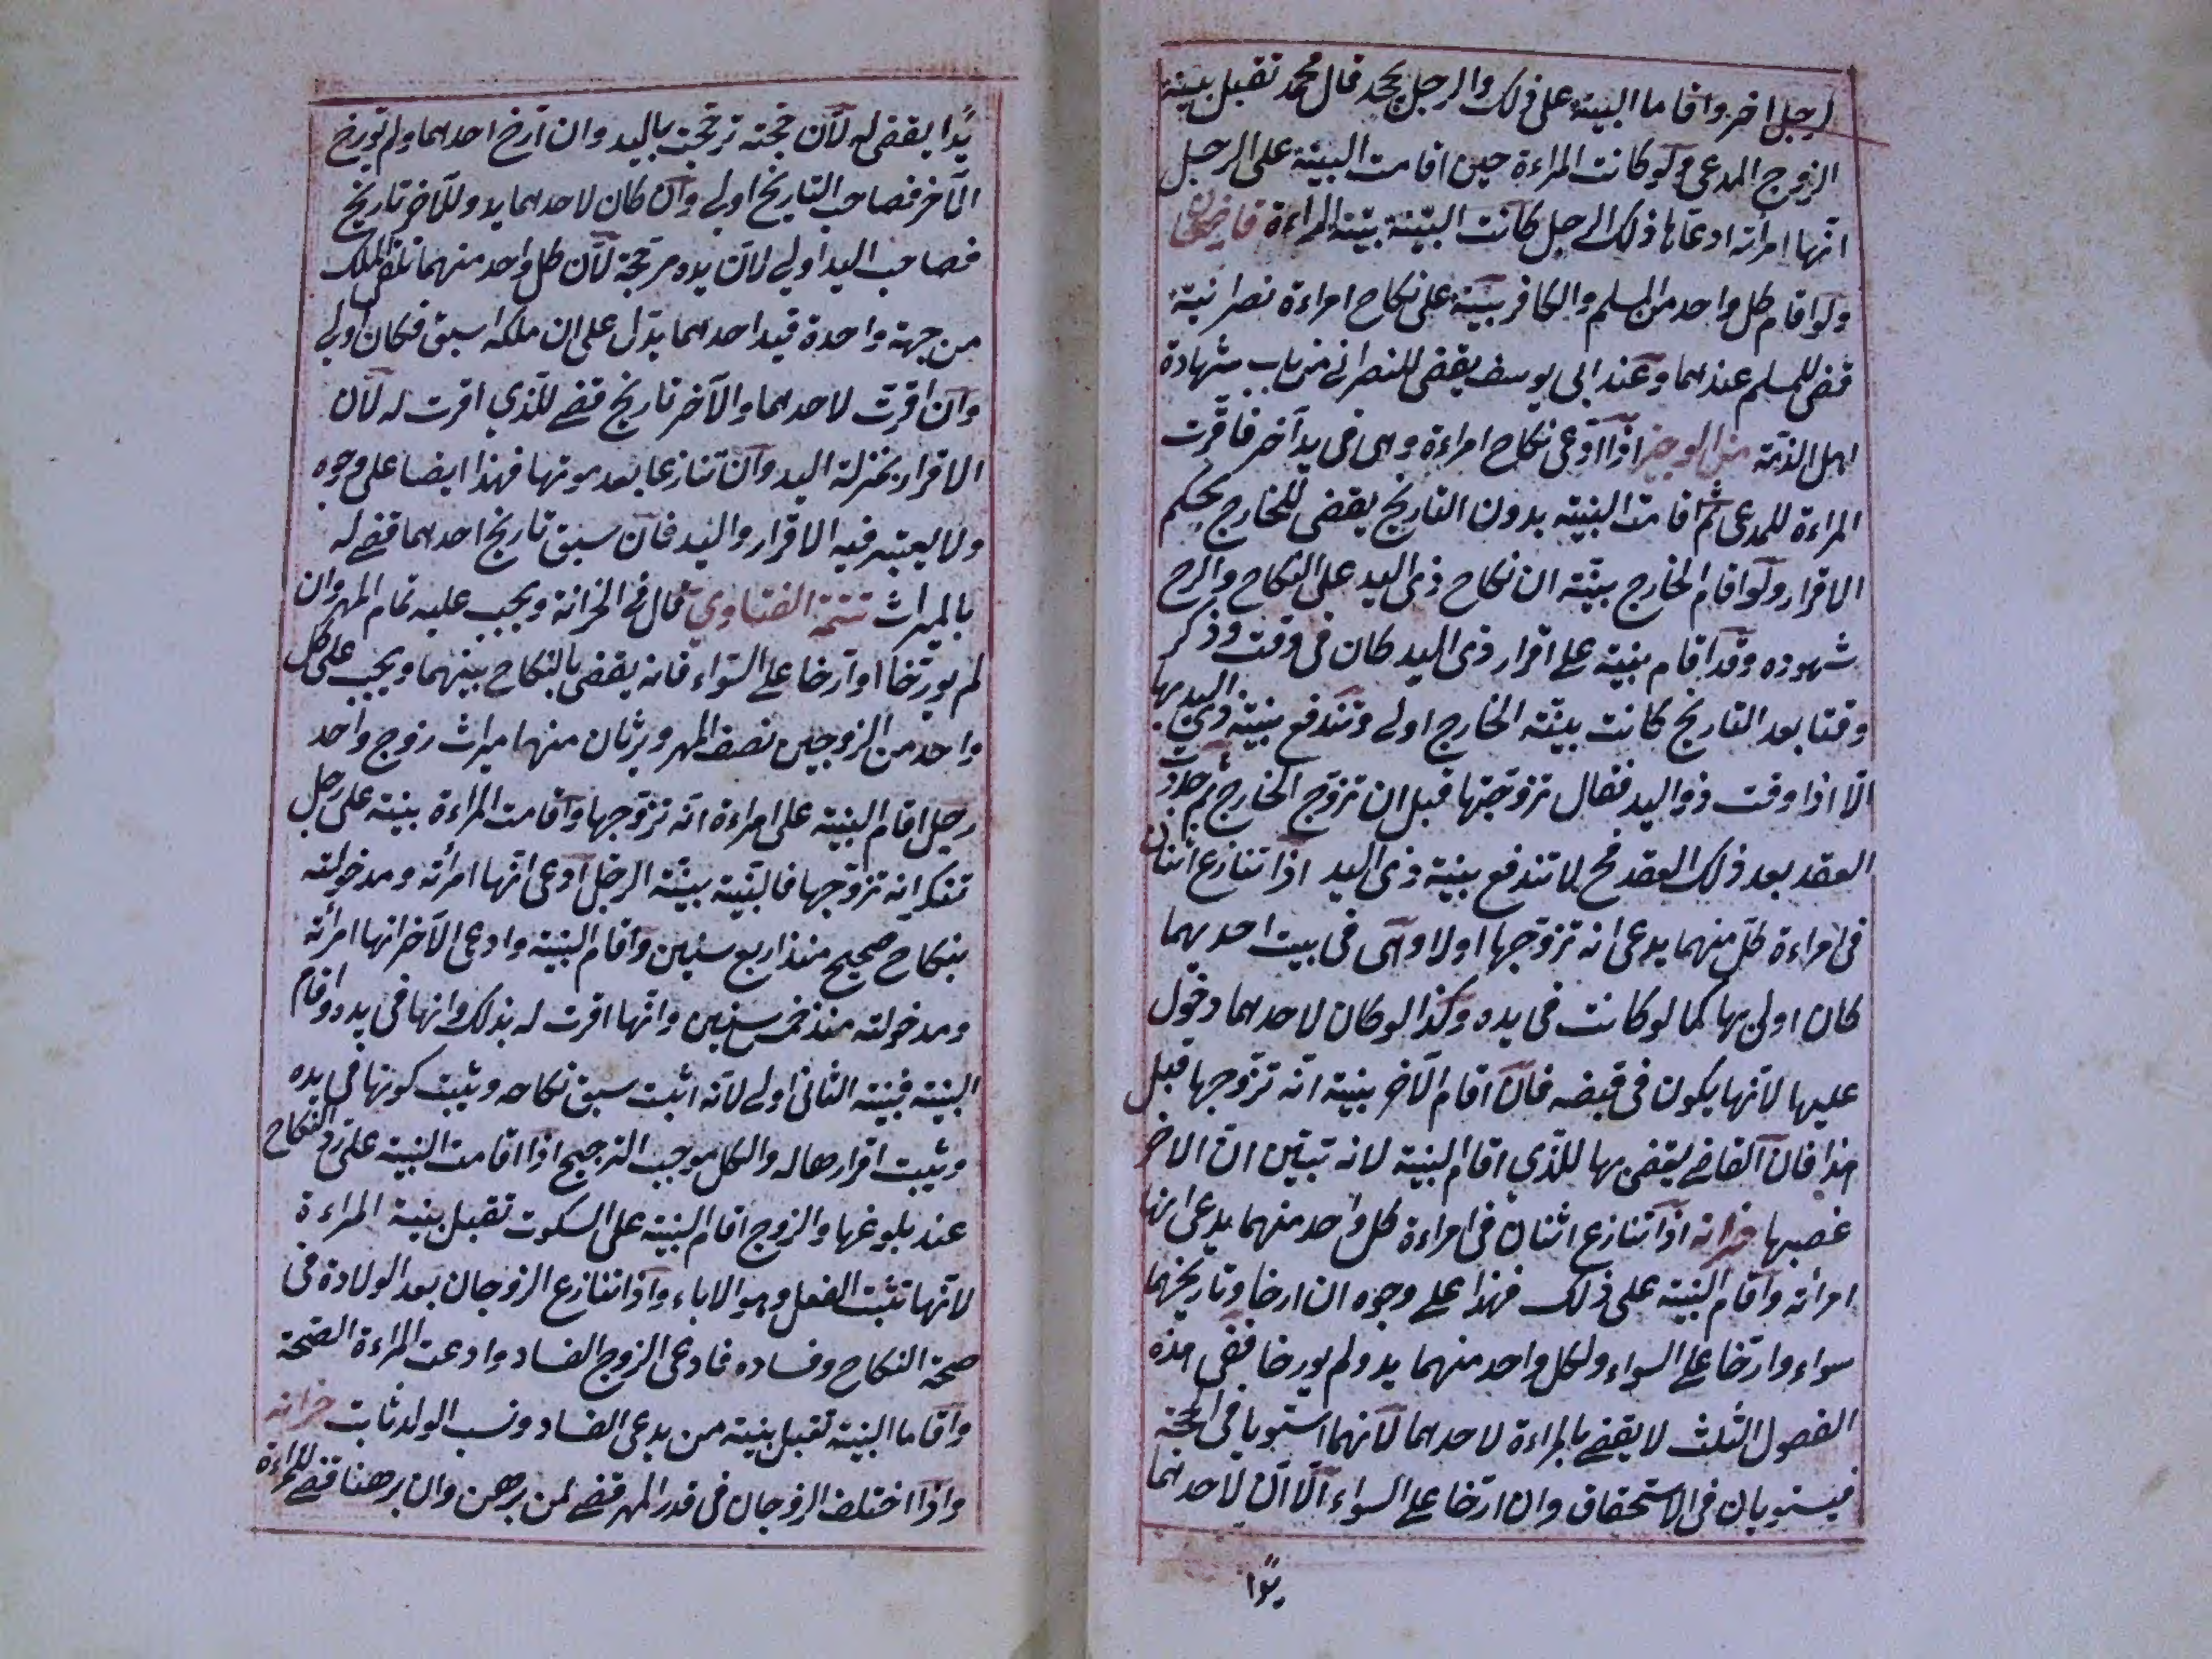 لرجل اخر واقاما البينة على ذلك والرجل يجحد قال محمد تقبل بينة
الزوج المدعى ولو كانت المراءة حين اقامت البينة على الرجل
انها امرأته ادعاها ذلك الرجل كانت البينة بينة المراءة قاضيخان
ولو اقام كل واحد من المسلم والكافر بينة على نكاح امراءة نصرانية
قضى للمسلم عندهما وعند ابى يوسف يقضى للنصرانے من باب شهادة
اهل الذمة من الوجيز اذا ادّعى نكاح امراءة وهى فى يد آخر فاقرّت
المراءة للمدعى ثم اقامت البينة بدون التاريخ يقضى للخارج بحكم
الاقرار ولو اقام الخارج بينة ان نكاح ذى اليد على النكاح
شهوده وقد اقام بينة على اقرار ذى اليد كان فى وقت وذكر
وقتا بعد التاريخ كانت بينة الخارج اولے وتندفع بينة ذي اليد بها
الّا اذا وقت ذو اليد فقال تزوّجتها قبل ان تزوّج الخارج ثم جدّدت
العقد بعد ذلك العقد فح لا تندفع بينة ذى اليد اذا تنازع اثنان
فى امراءة كلّ منهما يدعى انه تزوّجها اولا وهى فى بيت احديهما
كان اولى بها كما لو كانت فى يده وكذا لو كان لاحدهما دخول
عليها لانها يكون فى قبضه فان اقام الآخر بينة انه تزوّجها قبل
هذا فان القاضے يقضى بها للذي اقام البينة لانه تبيّن انّ الاخر
غصبها خزانه اذا تنازع اثنان فى امراءة كل واحد منهما يدعى انها
امرأته واقام البينة على ذلك فهذا علے وجوه ان ارخا وتاريخهما
سواء وارّخا علے السواء ولكل واحد منهما يد ولم يورخا ففى هذه
الفصول الثلث لا يقضے بالمراءة لاحدهما لأنهما استويا فى الحجة
فيستويان فى الاستحقاق وان ارّخا علے السواء الّا انّ لاحدهما
يدًا
يدًا يقضى له لأن حجته ترجّحت باليد وان ارخ احدهما ولم يورخ
الآخر فصاحب التاريخ اولے وان كان لاحدهما يد وللآخر تاريخ
فصاحب اليد اولے لان يده مرجّحة لأن كل واحد منهما تلقى الملك
من جهة واحدة فيد احدهما يدّل على ان ملكه اسبق فكان اولے
وان اقرّت لاحدهما والآخر تاريخ قضے للذي اقرت له لان
الاقرار بمنزلة اليد وان تنازعا بعد موتها فهذا ايضا على وجوه
ولا يعتبر فيه الاقرار واليد فان سبق تاريخ احدهما قضے له
بالميراث تتمة الفتاوي قال فے الخزانة ويجب عليه تمام المهر وان
لم يورّخا او ارخا علے السّواء فانه يقضى بالنكاح بينهما ويجب على كل
واحد من الزوجين نصف المهر ويرثان منها ميراث زوج واحد
رجل اقام البينة على امراءة انه تزوّجها واقامت المراءة بينة على رجل
تنكر انه تزوّجها فالبينة بينة الرجل ادعى انها امرأته ومدخولته
بنكاح صحيح منذ اربع سنين واقام البينة وادعى الآخر انها امرأته
ومدخولته منذ خمس سنين وانها اقرت له بذلك وانها فى يده واقام
البينة فبينة الثانى اولے لانه اثبت سبق نكاحه ويثبت كونها فى يده
ويثبت اقرارها له والكل موجب الترجيح اذا اقامت البينة على ردّ النكاح
عند بلوغها والزوج اقام البينة على السكوت تقبل بينة المراءة
لانها تثبت الفعل وهو الاباء واذا تنازع الزوجان بعد الولادة فى
صحة النكاح وفساده فادعى الزوج الفساد وادعت المراءة الصّحة
واقاما البينة تقبل بينة من يدعى الفساد ونسب الولد ثابت خزانه
واذا اختلف الزوجان فى قدر المهر قضے لمن برهن وان برهنا قضے للمراءة